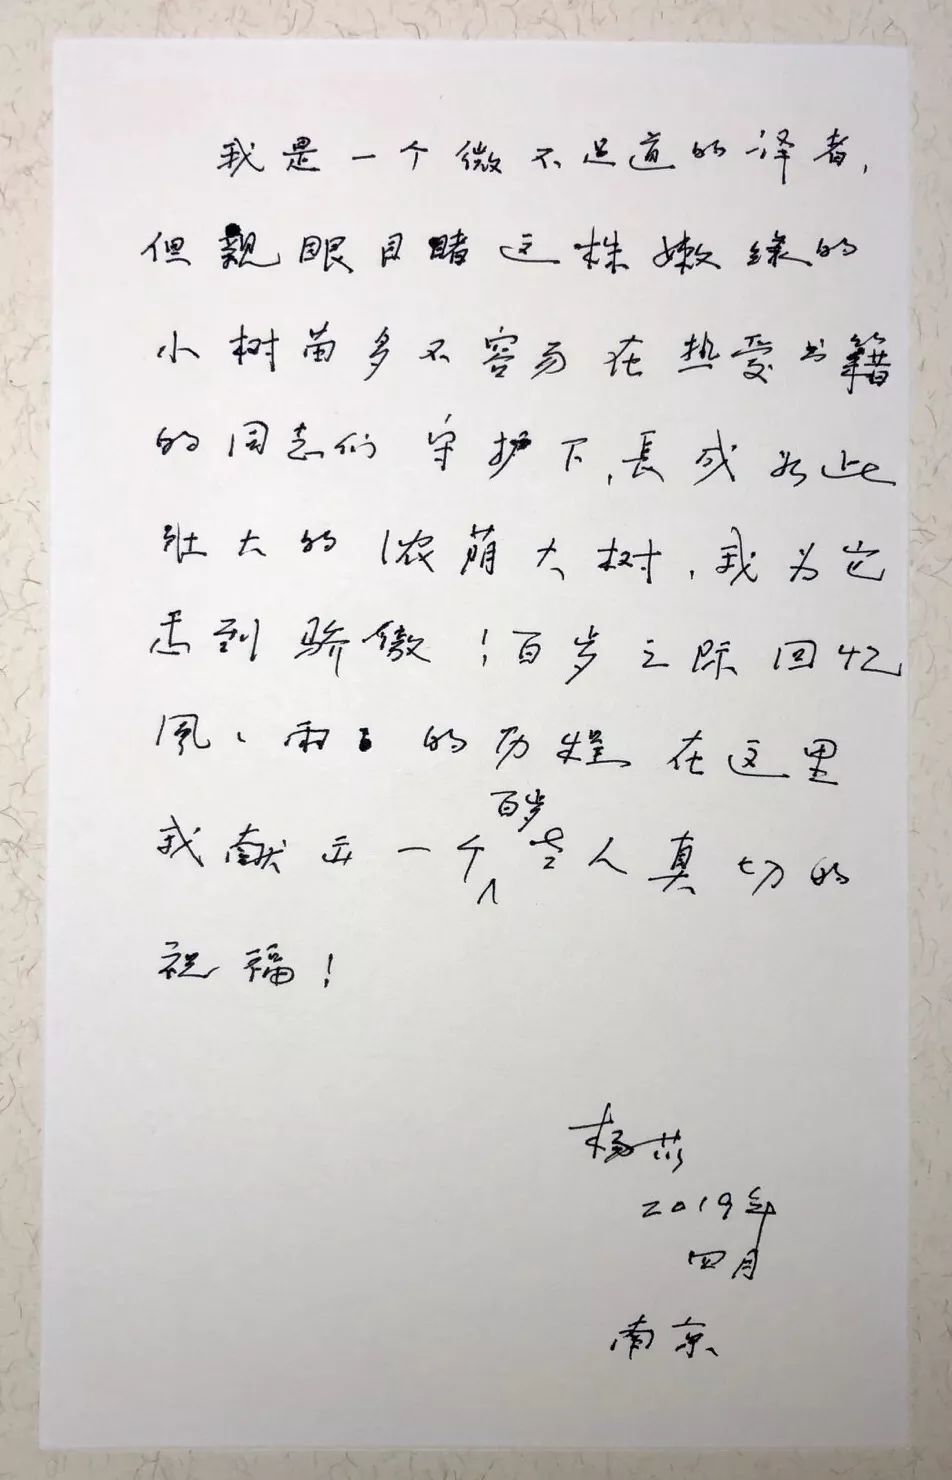 我是一个微不足道的译者，
但亲眼目睹这株嫩绿的
小树苗多不容易在热爱书籍
的同志们守护下，長成如此
壮大的浓荫大树，我为它
感到骄傲！百岁之际回忆
風风雨雨的历程，在这里
我献出一个百岁老人真切的
祝福！
杨苡
2019年
四月
南京